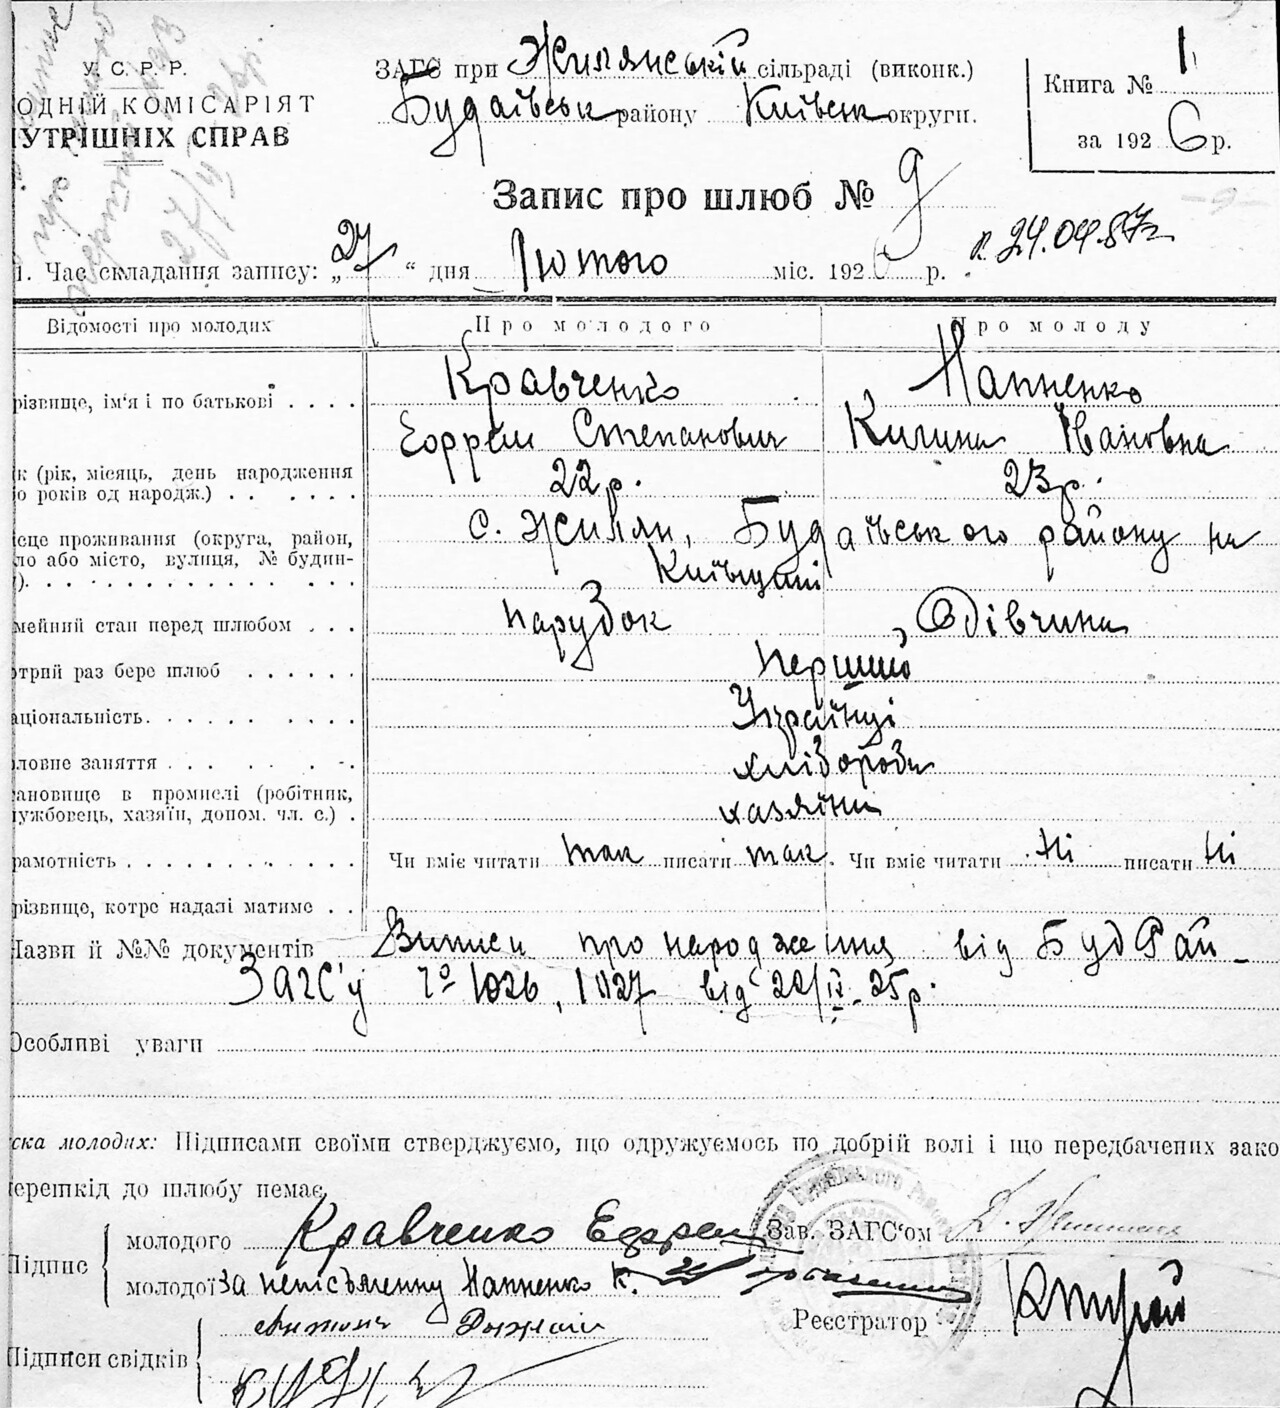 У. С. Р. Р.
ОДНІЙ КОМІСАРІЯТ
УТРІШНІХ СПРАВ
ЗАГС при Жилянській сільраді (виконк.)
Будаївськ району Київськ округи.
Книга № 1
за 1926 р.
Запис про шлюб № 9
24.04.87г
1. Час складання запису: „27“ дня Лютого міс. 1926 р.
Відомості про молодих Про молодого Про молоду
різвище, ім'я і по батькові . . . . Кравченко Напненко
Єфрем Степанович Килина Івановна
к (рік, місяць, день народження
о років од народж.) . . . . . . 22 р. 23 р.
ісце проживання (округа, район, с. Жиляни, Будаївського району на
ло або місто, вулиця, № будин-
). . . . . . . . . . . . . . Київщині
мейний стан перед шлюбом . . . парубок дівчина
отрий раз бере шлюб . . . . . . перший
аціональність. . . . . . . . . . Українці
ловне заняття . . . . . . . хлібороби
ановище в промислі (робітник,
ужбовець, хазяїн, допом. чл. с.) . хазяїни
рамотність . . . . . . . . . . . Чи вміє читати так писати так. Чи вміє читати Ні писати Ні
різвище, котре надалі матиме . .
Назви й №№ документів Виписи про народження від БудРай-
ЗАГС'у Чо 1026, 1027 від 22/IX-25р.
Особливі уваги
ска молодих: Підписами своїми стверджуємо, що одружуємось по добрій волі і що передбачених зако
ерешкід до шлюбу немає
Підпис
молодого Кравченко Ефрем Зав. ЗАГС"ом
молодої За неписьменну Напненко К.
Реєстратор
Підписи свідків